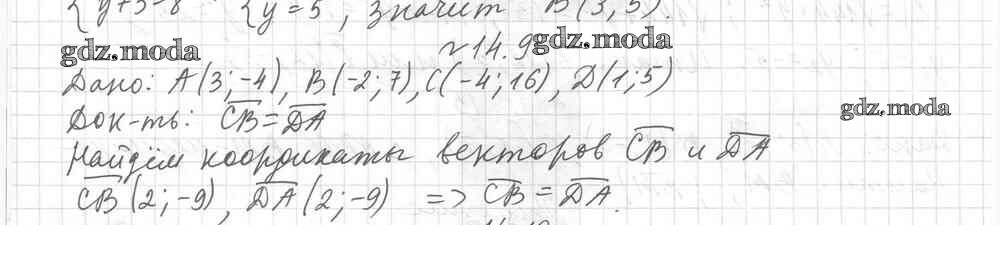 { y+3=8 { y=5, значит B(3; 5).
gdz.moda
№14.9 gdz.moda
Дано: A(3;-4), B(-2;7), C(-4;16), D(1;5)
gdz.moda
Док-ть: CB=DA
Найдём координаты векторов CB и DA
CB(2;-9), DA(2;-9) => CB=DA.